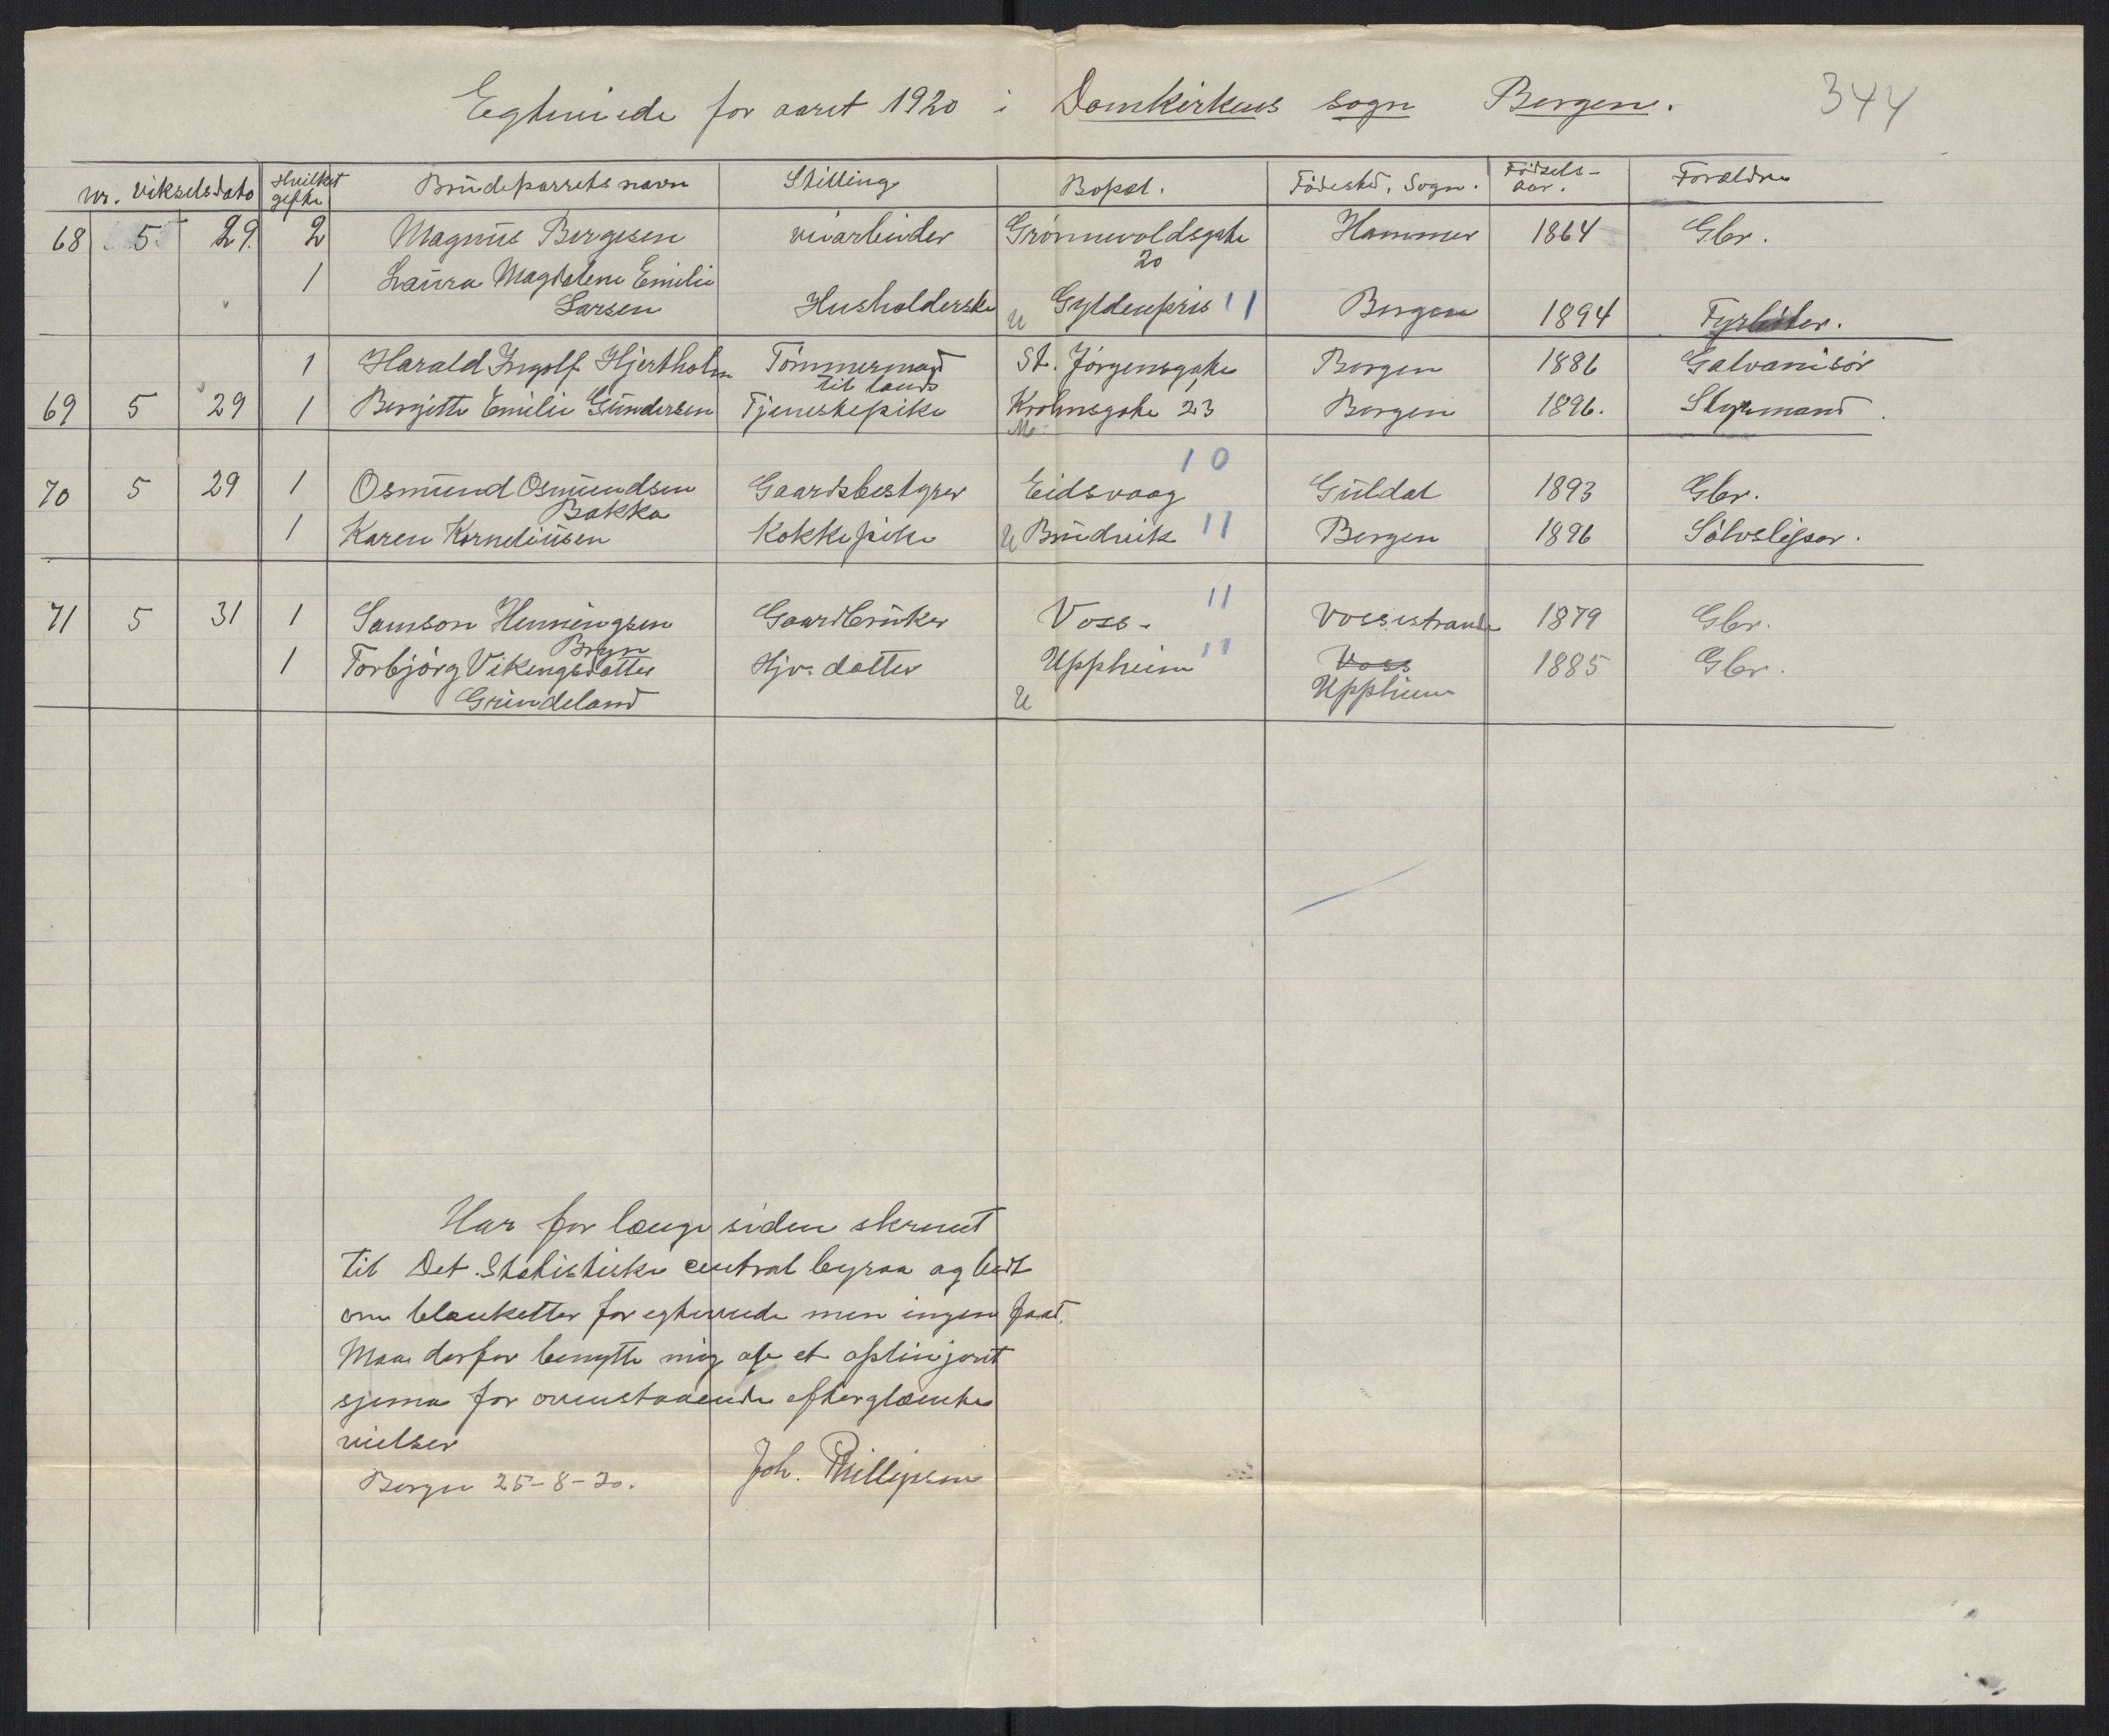 Egteviede for aaret 1920 i Domkirkens sogn Bergen. 344
nr. vikselsdato Hvilket gifte Brudeparrets navn Stilling Bopæl. Fødested, Sogn. Fødsels-aar. Forældre
68 5 29. 2 Magnus Bergesen veiarbeider Grønnevoldsgate 20 Hammer 1864 Gbr.
1 Laura Magdalene Emilie
Larsen Husholderske U Gyldenpris 11 Bergen 1894 Fyrbøter.
1 Harald Ingolf Hjertholm Tømmermand til lands St. Jørgensgate Bergen 1886 Galvanisør
69 5 29 1 Bergitte Emilie Gundersen Tjenestepike Krohnsgate 23 Bergen 1896. Styrmand
M
10
70 5 29 1 Osmund Osmundsen Bakka Gaardsbestyrer Eidsvaag Guldal 1893 Gbr.
1 Karen Korneliusen Kokkepike U Brudvik 11 Bergen 1896 Sølvsliper.
11
71 5 31 1 Samson Henningsen Bryn Gaardbruker Voss. Vossestrand 1879 Gbr.
1 Torbjørg Vikingsdotter Hjv. datter Uppheim 11 Voss 1885 Gbr.
Grindeland U Uppheim
Har for længe siden skrevet
til Det Statistiske centralbyraa og bedt
om blanketter for egteviede men ingen faat.
Maa derfor benytte mig af et oplinjert
sjema for ovenstaaende efterglæmte
vielser
Bergen 25-8-20. Joh. Phillipsen